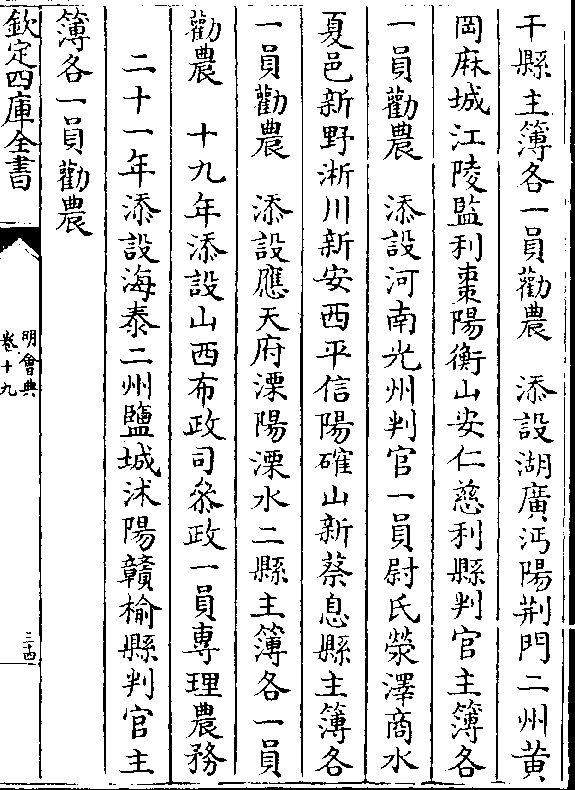 干縣主簿各一員勸農　添設湖廣沔陽荆門二州黄
岡麻城江陵監利棗陽衡山安仁慈利縣判官主簿各
一員勸農　添設河南光州判官一員尉氏滎澤商水
夏邑新野淅川新安西平信陽確山新蔡息縣主簿各
一員勸農　添設應天府溧陽溧水二縣主簿各一員
勸農　十九年添設山西布政司叅政一員專理農務
二十一年添設海泰二州鹽城沭陽贛榆縣判官主
簿各一員勸農
欽定四庫全書
明會典
卷十九
三十四